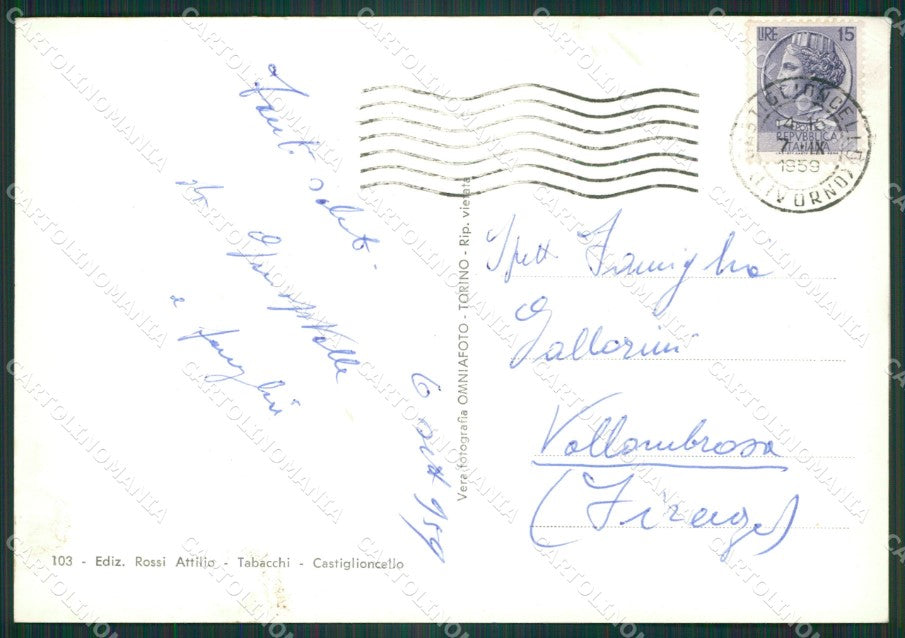 LIRE 15
POSTE
REPVBBLICA
ITALIANA
CASTIGLIONCELLO
7 IX
1959
(LIVORNO)
Tanti saluti
e famiglia
6 sett 959
Spett Famiglia
Vallombrosa
(Firenze)
Vera fotografia OMNIAFOTO - TORINO - Rip. vietata
103 - Ediz. Rossi Attilio - Tabacchi - Castiglioncello
CARTOLINOMANIA